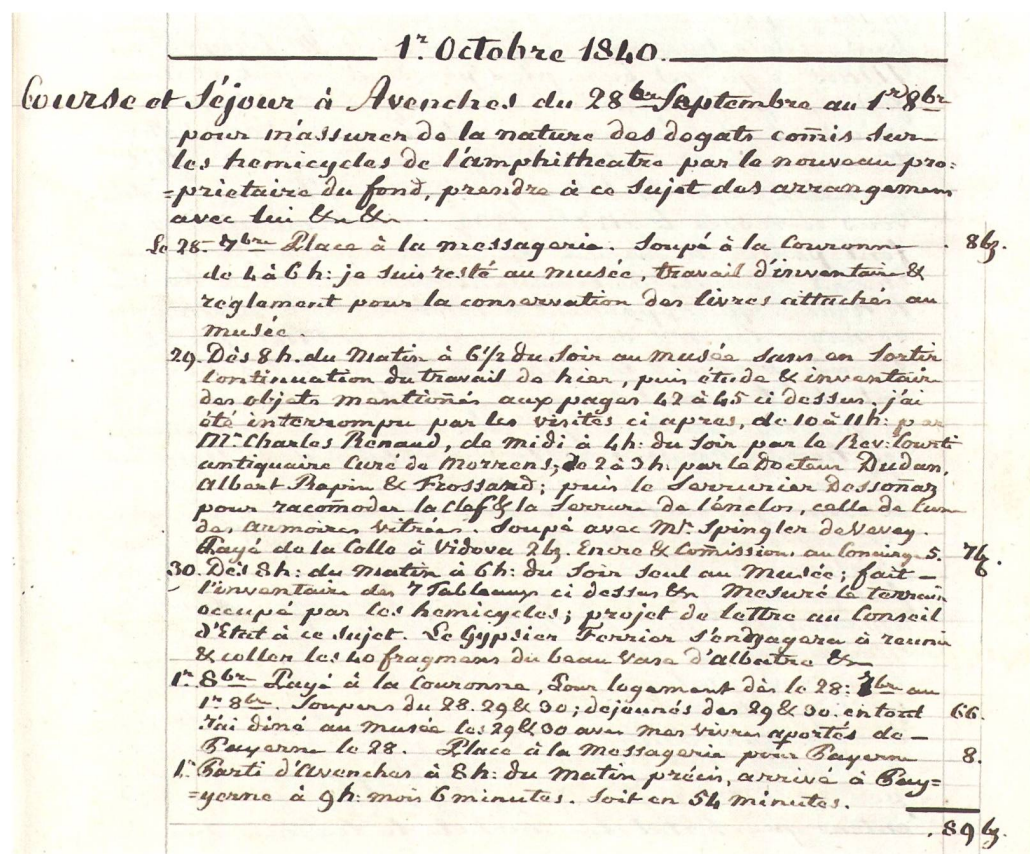 1r. Octobre 1840.
Course et Séjour à Avenches du 28 br Septembre au 1r. 8br
pour m'assurer de la nature des dogats comis sur
les hemicycles de l'amphitheatre par le nouveau pro=
=prietaire du fond, prendre à ce sujet des arrangemens
avec lui &a &a.
Le 28. 7bre Place à la messagerie. Soupé à la Couronne . 8bz
de 4 à 6 h: je suis resté au musée, travail d'inventaire &
réglement pour la conservation des livres attachés au
musée.
29. Dès 8 h. du Matin à 6 1/2 du Soir au musée sans en Sortir
Continuation du travail de hier, puis étude & inventaire
des objets mentionés aux pages 42 à 45 ci dessus. j'ai
été interrompu par les visites ci apres, de 10 à 11 h: par
Mr. Charles Renaud, de midi à 4h: du Soir par le Rev: Courti
antiquaire Curé de Morrens; de 2 à 3 h: par le Docteur Dudan,
Albert Rapin & Frossard; puis le Serrurier Dessonaz
pour racomoder la Clef & la Serrure de l'enclos, celle de l'une
des armoires vitrées. Soupé avec Mr. Spingler de Vevey.
Payé de la Colle à Vidova 2 bz. Encre & Comissions au Concierge 5. 7bz.
30. Dès 8 h: du Matin à 6 h: du Soir Seul au Musée; fait
l'inventaire des 7 Tableaux ci dessus &a Mesuré le terrein
occupé par les hemicycles; projet de lettre au Conseil
d'Etat à ce sujet. Le Gypsier Ferrier s'engagera à reunir
& coller les 40 fragmens du beau Vase d'albatre &a
1r. 8bre Payé à la Couronne, Pour logement dès le 28: 7br au
1r 8br. Soupers du 28. 29 & 30; dejeunés des 29 & 30. en tout 66.
J'ai diné au musée les 29 & 30 avec mes vivres aportés de
Payerne le 28. Place à la Messagerie pour Payerne 8.
1r. Parti d'Avenches à 8 h: du Matin précis, arrivé à Pay=
=yerne à 9 h: mois 6 minutes. Soit en 54 minutes.
. 89 bz.